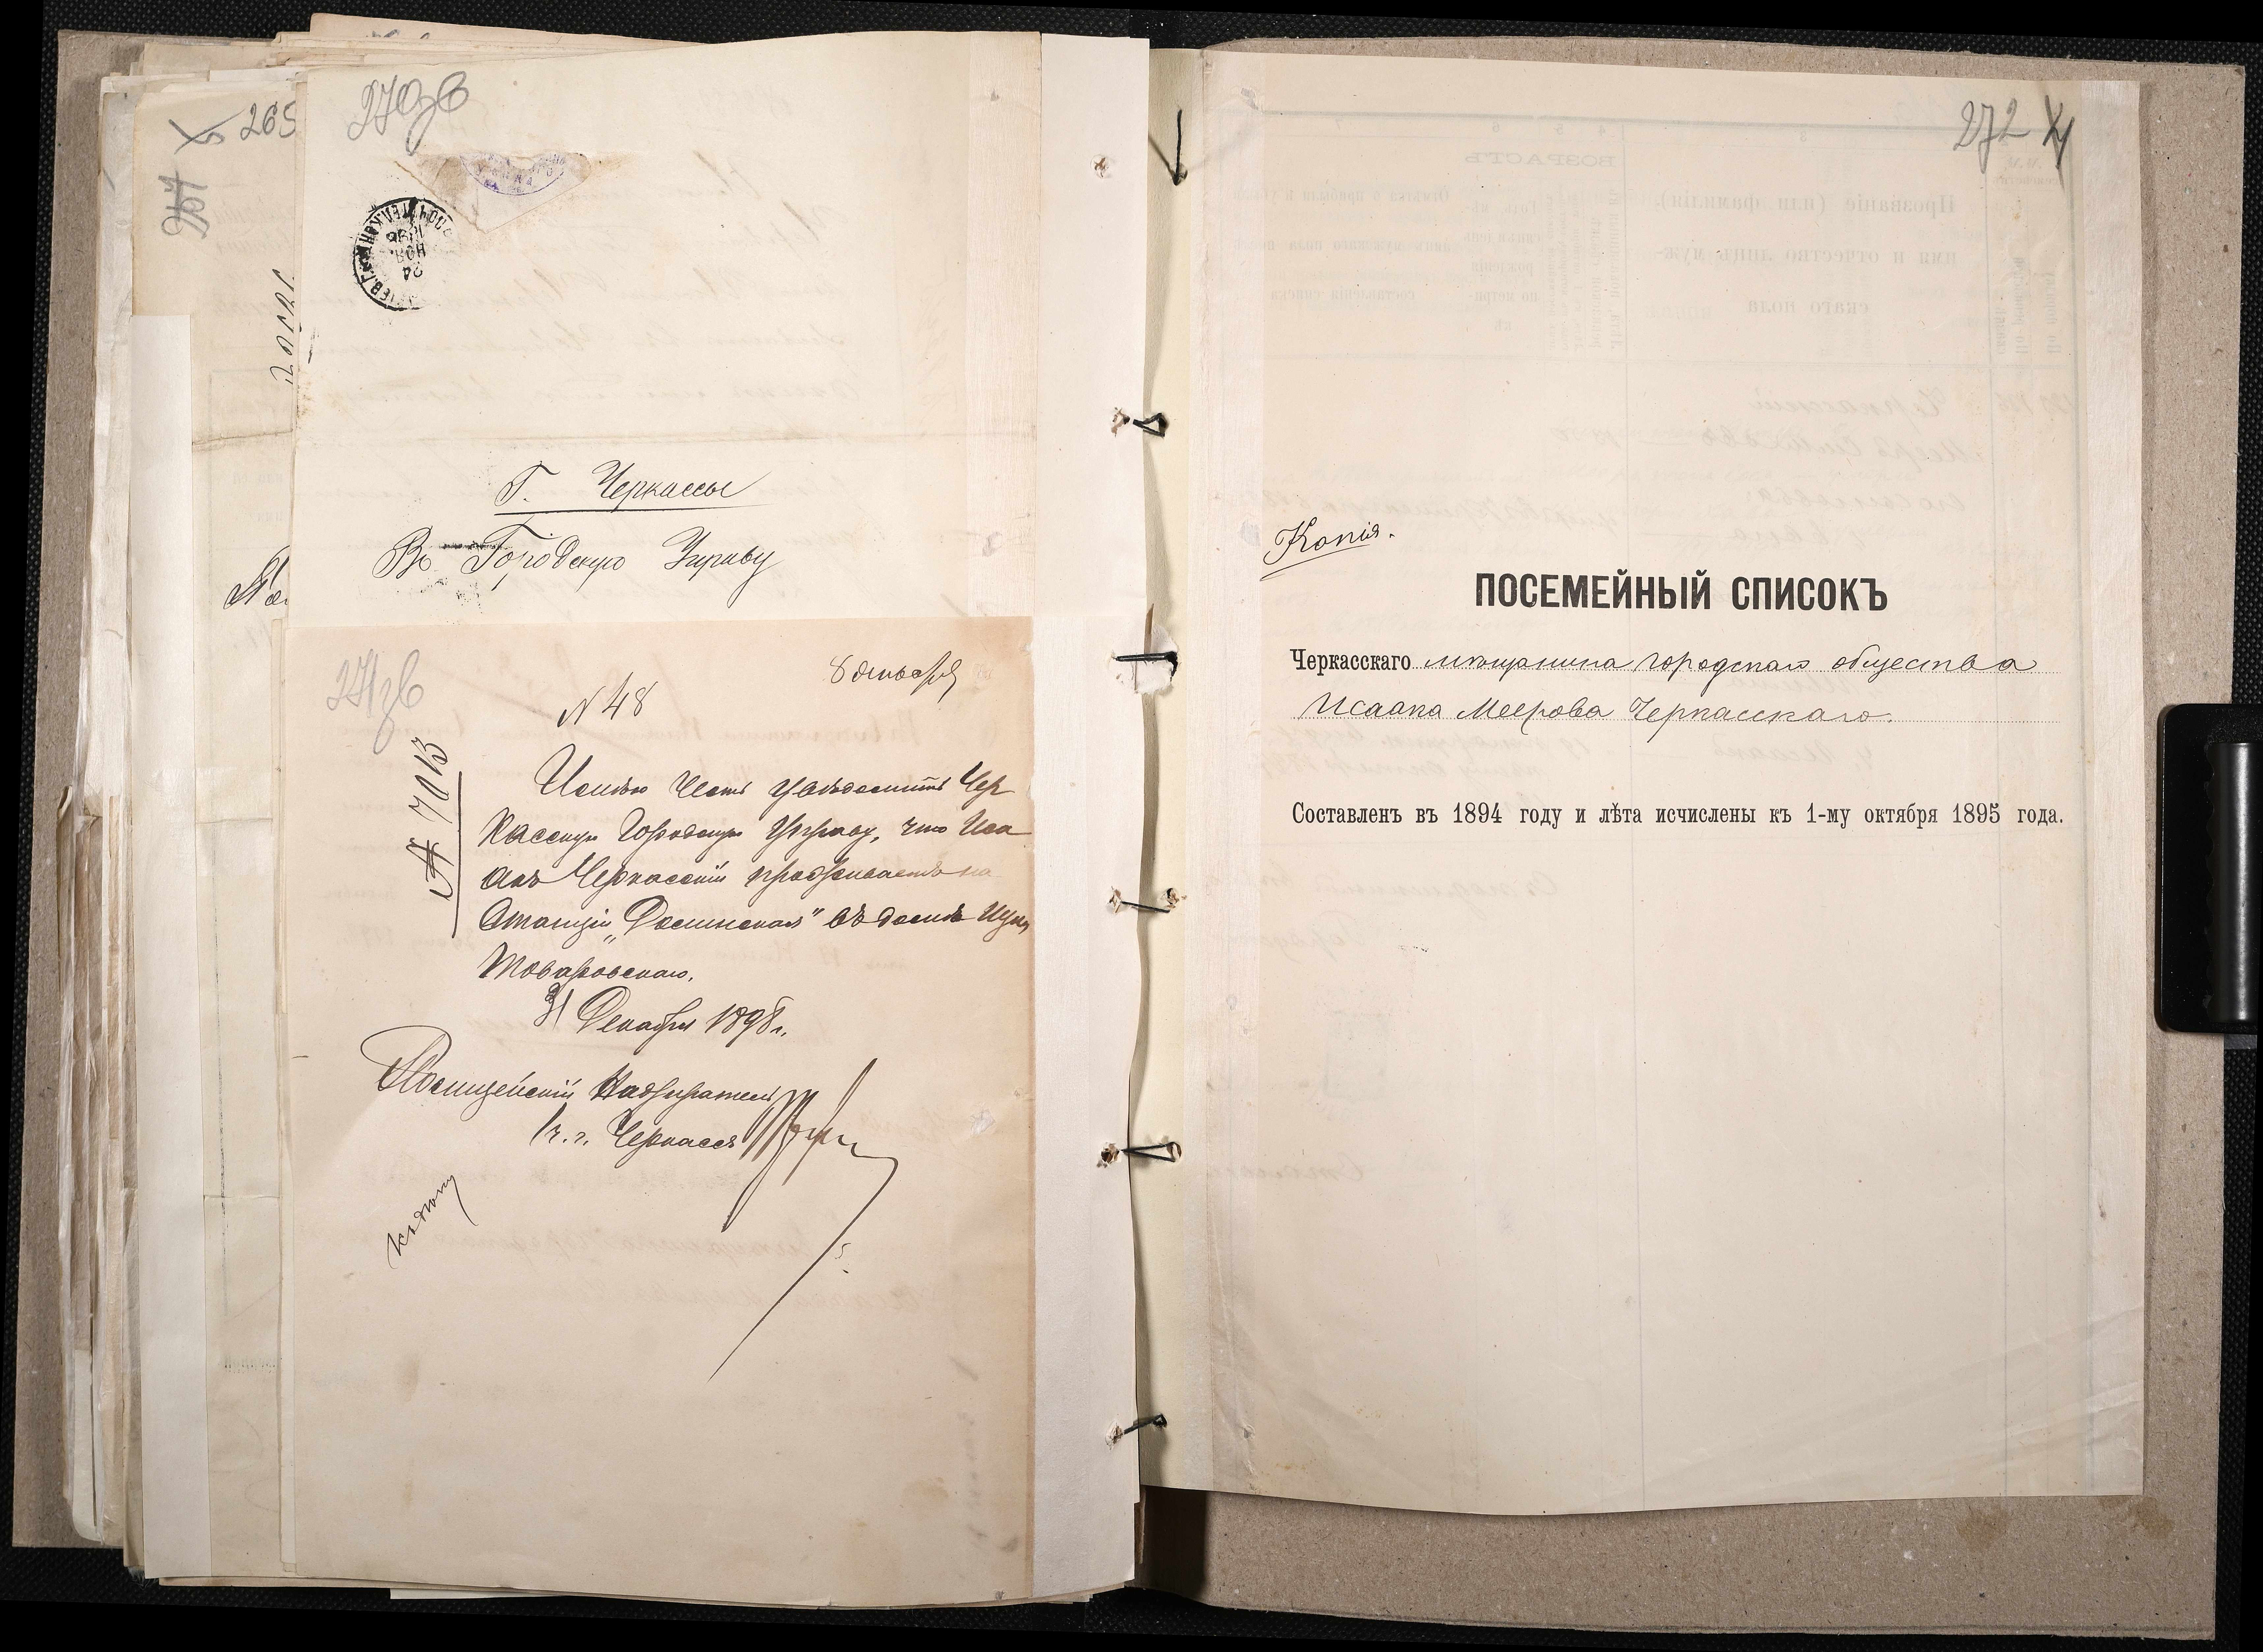 270об
265
267
24
НОЯ.
Г. Черкассы
Въ Городскую Управу
271об
8 января
№ 48
№ 7013
Имѣю честь увѣдомить Чер
касскую Городскую Управу, что Иса
акъ Черкасскій проживаетъ на
станціи „ въ домѣ
31 Декабря 1898 г.
Полицейскій Надзиратель
1 ч. г. Черкассъ
272
Копія.
ПОСЕМЕЙНЫЙ СПИСОКЪ
Черкасскаго мѣщанина городскаго общества
Исаака Меерова Черкасскаго.
Составленъ въ 1894 году и лѣта исчислены къ 1-му октября 1895 года.